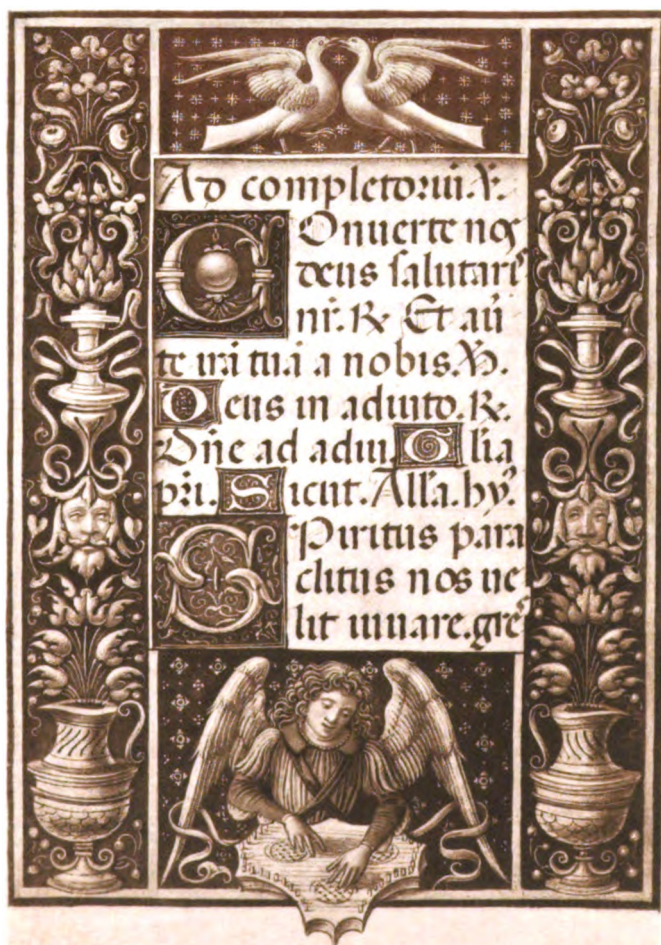 Ad completoriū. ℣.
Conuerte nos
deus salutaris
nr̄. ℟. Et auer
te irā tuā a nobis. ℣.
Deus in adiuto. ℟.
Dn̄e ad adiu. Glīa
pr̄i. Sicut. Alla. hy.
Spiritus para
clitus nos ue
lit iuuare. gre